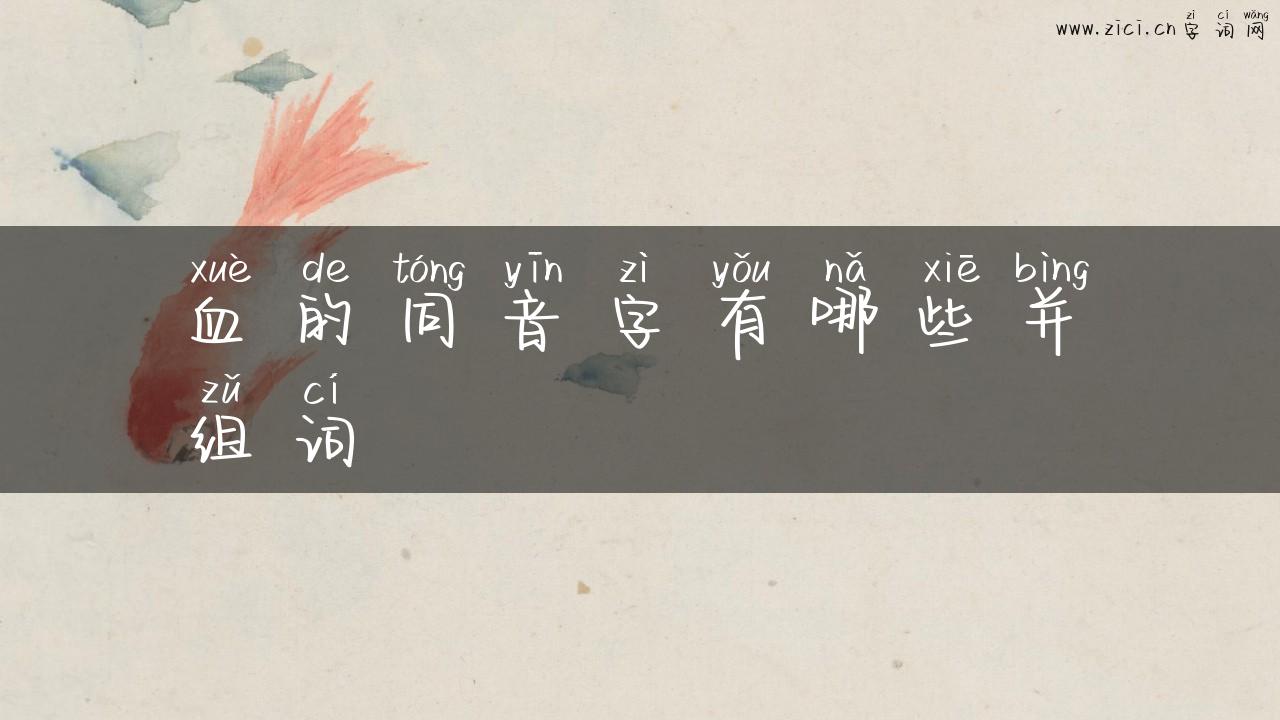 zì cí wǎng
www.zici.cn字词网
xuè de tóng yīn zì yǒu nǎ xiē bìng
血的同音字有哪些并
zǔ cí
组词